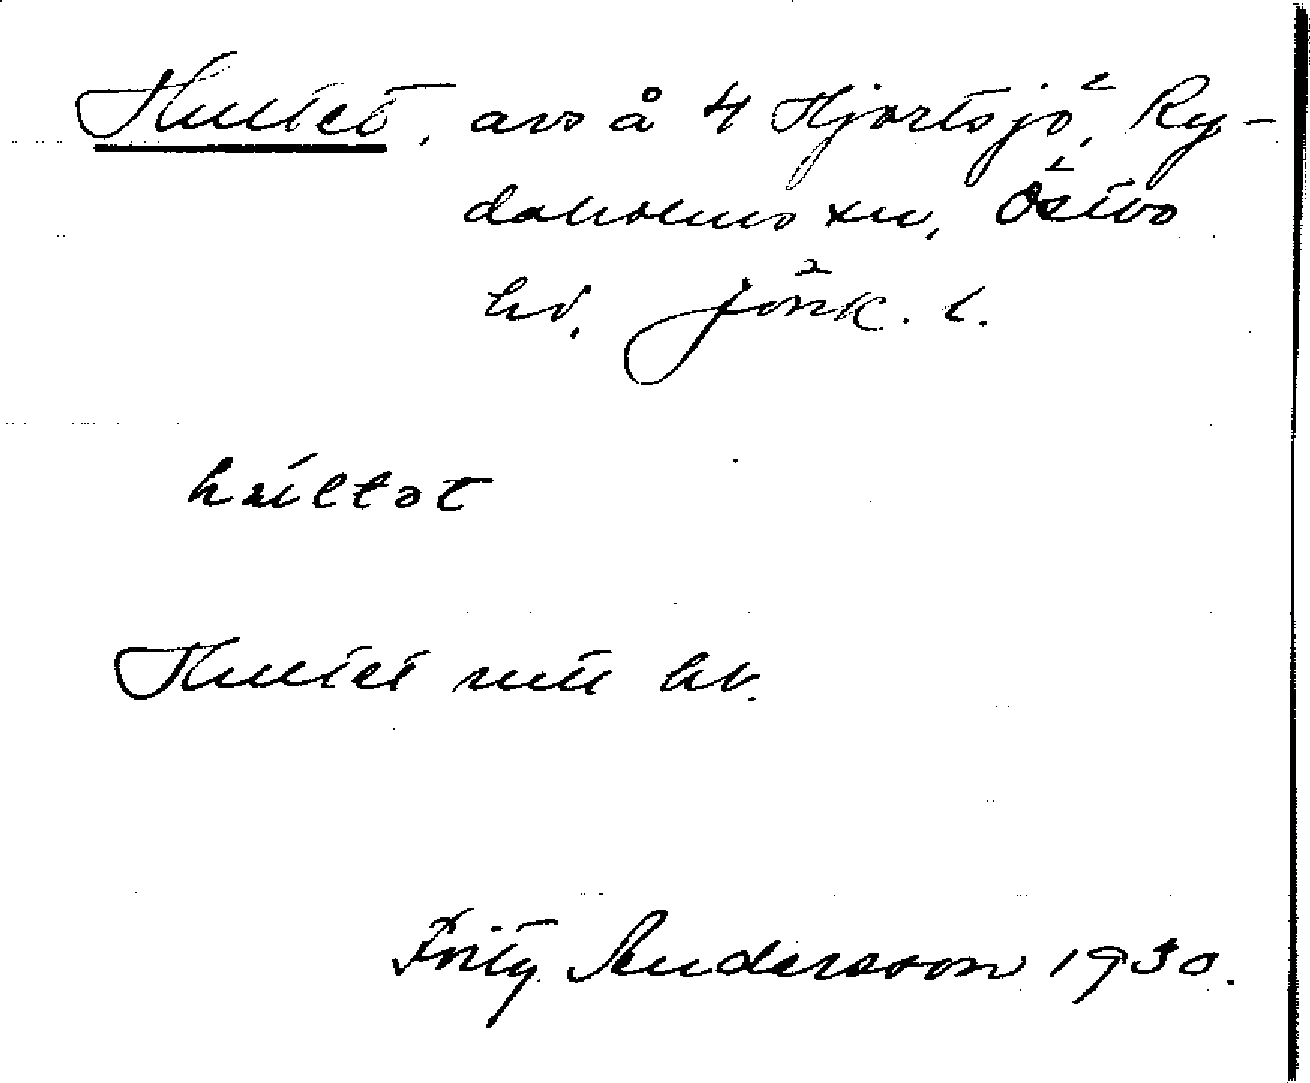 Hultet, avs å 4 Hjortsjö, Ry-
daholms sn, Östbo
hd, Jönk. l.
hultət
Hultet
Fritz Andersson 1930.